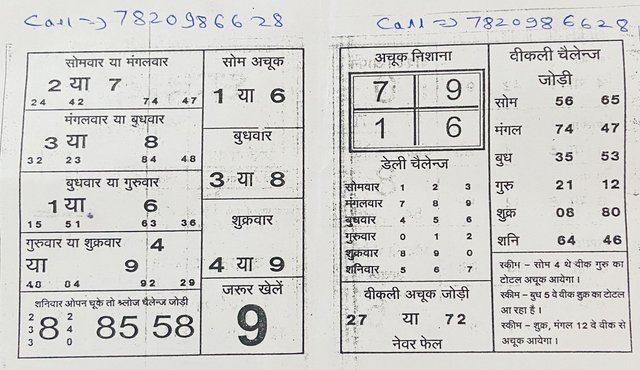 Call => 7820986628
सोमवार या मंगलवार
2 या 7
24 42 74 47
मंगलवार या बुधवार
3 या 8
32 23 84 48
बुधवार या गुरुवार
1 या 6
15 51 63 36
गुरुवार या शुक्रवार 4
या 9
48 84 92 29
शनिवार ओपन चूके तो श्लोज चैलेन्ज जोड़ी
2 3 3 8 2 4 0 85 58
सोम अचूक
1 या 6
बुधवार
3 या 8
शुक्रवार
4 या 9
जरूर खेलें
9
Call => 7820986628
अचूक निशाना
7 9
1 6
डेली चैलेन्ज
सोमवार 1 2 3
मंगलवार 7 8 9
बुधवार 4 5 6
गुरुवार 0 1 2
शुक्रवार 8 9 0
शनिवार 5 6 7
वीकली अचूक जोड़ी
27 या 72
नेवर फेल
वीकली चैलेन्ज
जोड़ी
सोम 56 65
मंगल 74 47
बुध 35 53
गुरु 21 12
शुक्र 08 80
शनि 64 46
स्कीम – सोम 4 थे वीक गुरु का
टोटल अचूक आयेगा ।
स्कीम – बुध 5 वे वीक शुक्र का टोटल
आ रहा है ।
स्कीम – शुक्र, मंगल 12 वे वीक से
अचूक आयेगा ।